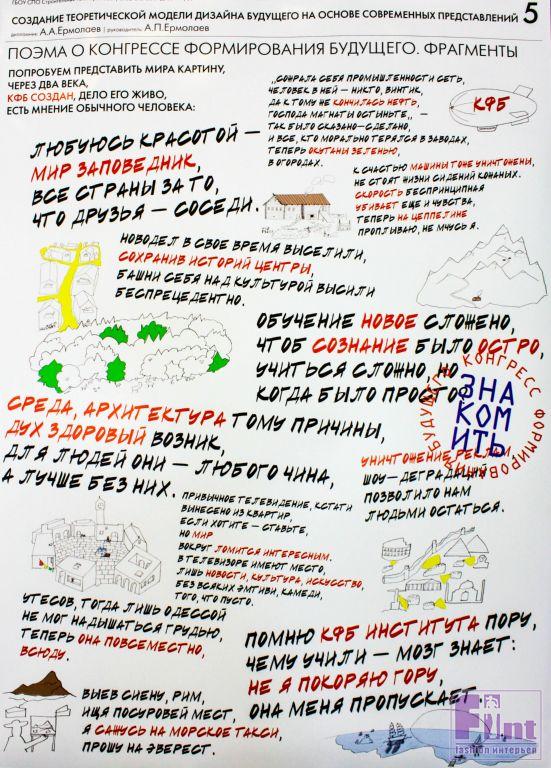 ГБОУ СПО Строительный
СОЗДАНИЕ ТЕОРЕТИЧЕСКОЙ МОДЕЛИ ДИЗАЙНА БУДУЩЕГО НА ОСНОВЕ СОВРЕМЕННЫХ ПРЕДСТАВЛЕНИЙ 5
дипломник А.А.Ермолаев руководитель А.П.Ермолаев
ПОЭМА О КОНГРЕССЕ ФОРМИРОВАНИЯ БУДУЩЕГО. ФРАГМЕНТЫ
ПОПРОБУЕМ ПРЕДСТАВИТЬ МИРА КАРТИНУ,
ЧЕРЕЗ ДВА ВЕКА,
КФБ СОЗДАН, ДЕЛО ЕГО ЖИВО,
ЕСТЬ МНЕНИЕ ОБЫЧНОГО ЧЕЛОВЕКА:
„СОЖРАЛА СЕБЯ ПРОМЫШЛЕННОСТИ СЕТЬ,
ЧЕЛОВЕК В НЕЙ — НИКТО, ВИНТИК,
ДА К ТОМУ ЖЕ КОНЧИЛАСЬ НЕФТЬ,
ГОСПОДА МАГНАТЫ ОСТЫНЬТЕ„ —
ТАК БЫЛО СКАЗАНО—СДЕЛАНО,
И ВСЕ, КТО МОРАЛЬНО ТЕРЯЛСЯ В ЗАВОДАХ,
ТЕПЕРЬ ОКУТАНЫ ЗЕЛЕНЬЮ,
В ОГОРОДАХ.
КФБ
ЛЮБУЮСЬ КРАСОТОЙ —
МИР ЗАПОВЕДНИК,
ВСЕ СТРАНЫ ЗА ТО,
ЧТО ДРУЗЬЯ — СОСЕДИ.
К СЧАСТЬЮ МАШИНЫ ТОЖЕ УНИЧТОЖЕНЫ,
НЕ СТОЯТ ЖИЗНИ СИДЕНИЙ КОЖАНЫХ.
СКОРОСТЬ БЕСПРИНЦИПНАЯ
УБИВАЕТ ЕЩЕ И ЧУВСТВА,
ТЕПЕРЬ НА ЦЕППЕЛИНЕ
ПРОПЛЫВАЮ, НЕ МЧУСЬ Я.
НОВОДЕЛ В СВОЕ ВРЕМЯ ВЫСЕЛИЛИ,
СОХРАНИВ ИСТОРИЙ ЦЕНТРЫ,
БАШНИ СЕБЯ НАД КУЛЬТУРОЙ ВЫСИЛИ
БЕСПРЕЦЕДЕНТНО.
ОБУЧЕНИЕ НОВОЕ СЛОЖЕНО,
ЧТОБ СОЗНАНИЕ БЫЛО ОСТРО,
УЧИТЬСЯ СЛОЖНО, НО
КОГДА БЫЛО ПРОСТО?
КОНГРЕСС ФОРМИРОВАНИЯ БУДУЩЕГО
ЗНА
КОМ
ИТЬ
СРЕДА, АРХИТЕКТУРА ТОМУ ПРИЧИНЫ,
ДУХ ЗДОРОВЫЙ ВОЗНИК,
ДЛЯ ЛЮДЕЙ ОНИ — ЛЮБОГО ЧИНА,
А ЛУЧШЕ БЕЗ НИХ.
УНИЧТОЖЕНИЕ РЕКЛАМ,
ШОУ—ДЕГРАДАЦИЙ
ПОЗВОЛИЛО НАМ
ЛЮДЬМИ ОСТАТЬСЯ.
ПРИВЫЧНОЕ ТЕЛЕВИДЕНИЕ, КСТАТИ
ВЫНЕСЕНО ИЗ КВАРТИР,
ЕСЛИ ХОТИТЕ — СТАВЬТЕ,
НО МИР
ВОКРУГ ЛОМИТСЯ ИНТЕРЕСНЫМ.
В ТЕЛЕВИЗОРЕ ИМЕЮТ МЕСТО,
ЛИШЬ НОВОСТИ, КУЛЬТУРА, ИСКУССТВО,
БЕЗ ВСЯКИХ ЭМТИВИ, КАМЕДИ,
ТОГО, ЧТО ПУСТО.
УТЕСОВ, ТОГДА ЛИШЬ ОДЕССОЙ
НЕ МОГ НАДЫШАТЬСЯ ГРУДЬЮ,
ТЕПЕРЬ ОНА ПОВСЕМЕСТНО,
ВСЮДУ.
ПОМНЮ КФБ ИНСТИТУТА ПОРУ,
ЧЕМУ УЧИЛИ — МОЗГ ЗНАЕТ:
НЕ Я ПОКОРЯЮ ГОРУ,
ОНА МЕНЯ ПРОПУСКАЕТ.
ВЫЕВ СИЕНУ, РИМ,
ИЩЯ ПОСУРОВЕЙ МЕСТ,
Я САЖУСЬ НА МОРСКОЕ ТАКСИ,
ПРОШУ НА ЭВЕРЕСТ.
Flint
fashion интерьер